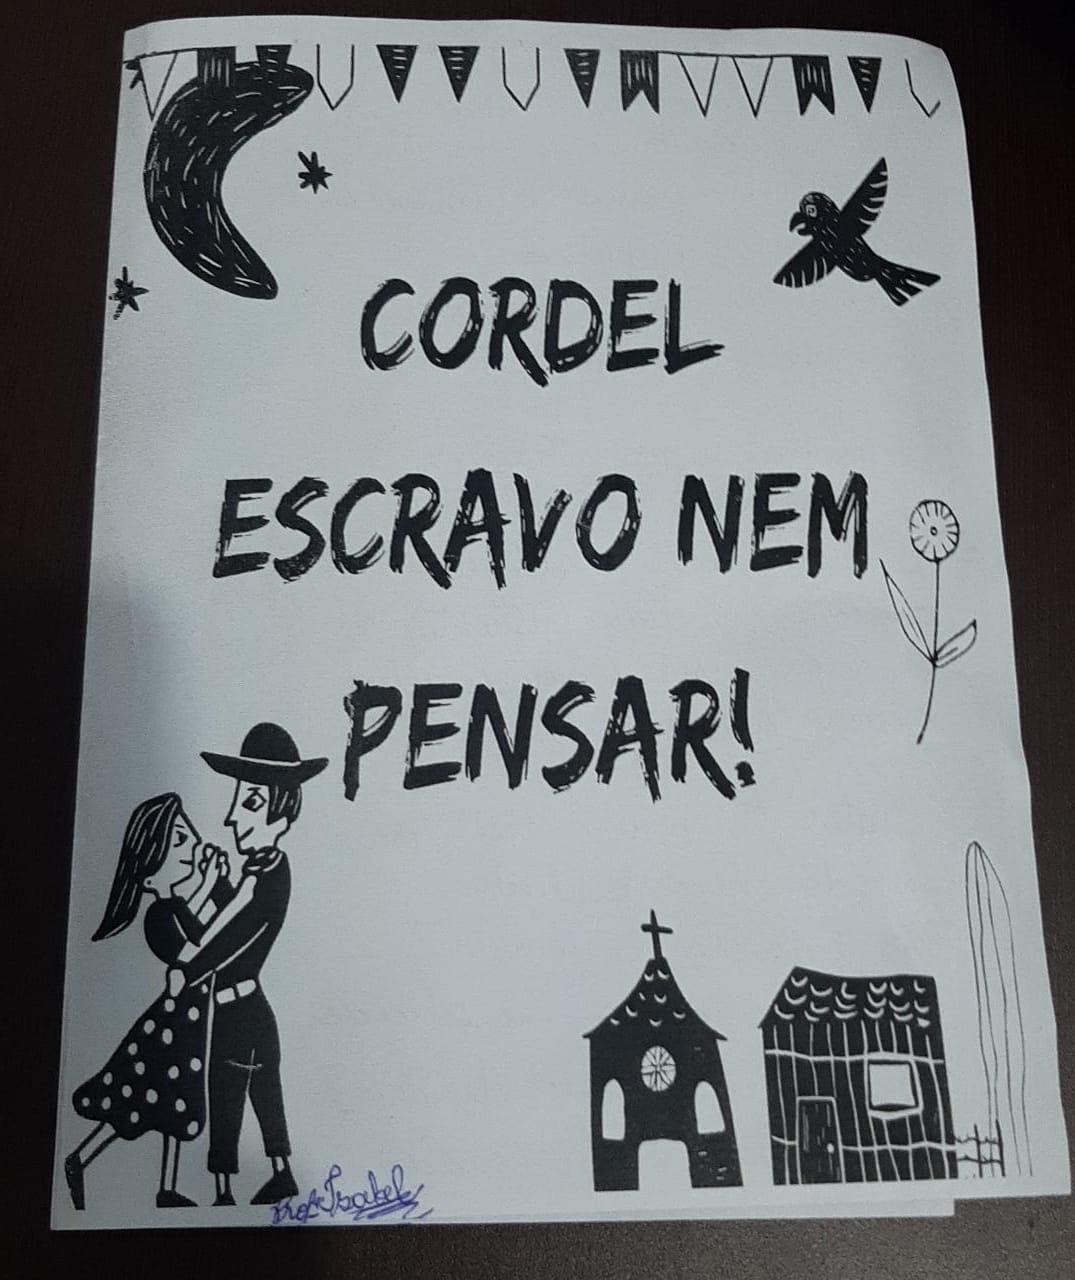 CORDEL
ESCRAVO NEM
PENSAR!
Prof Isabel